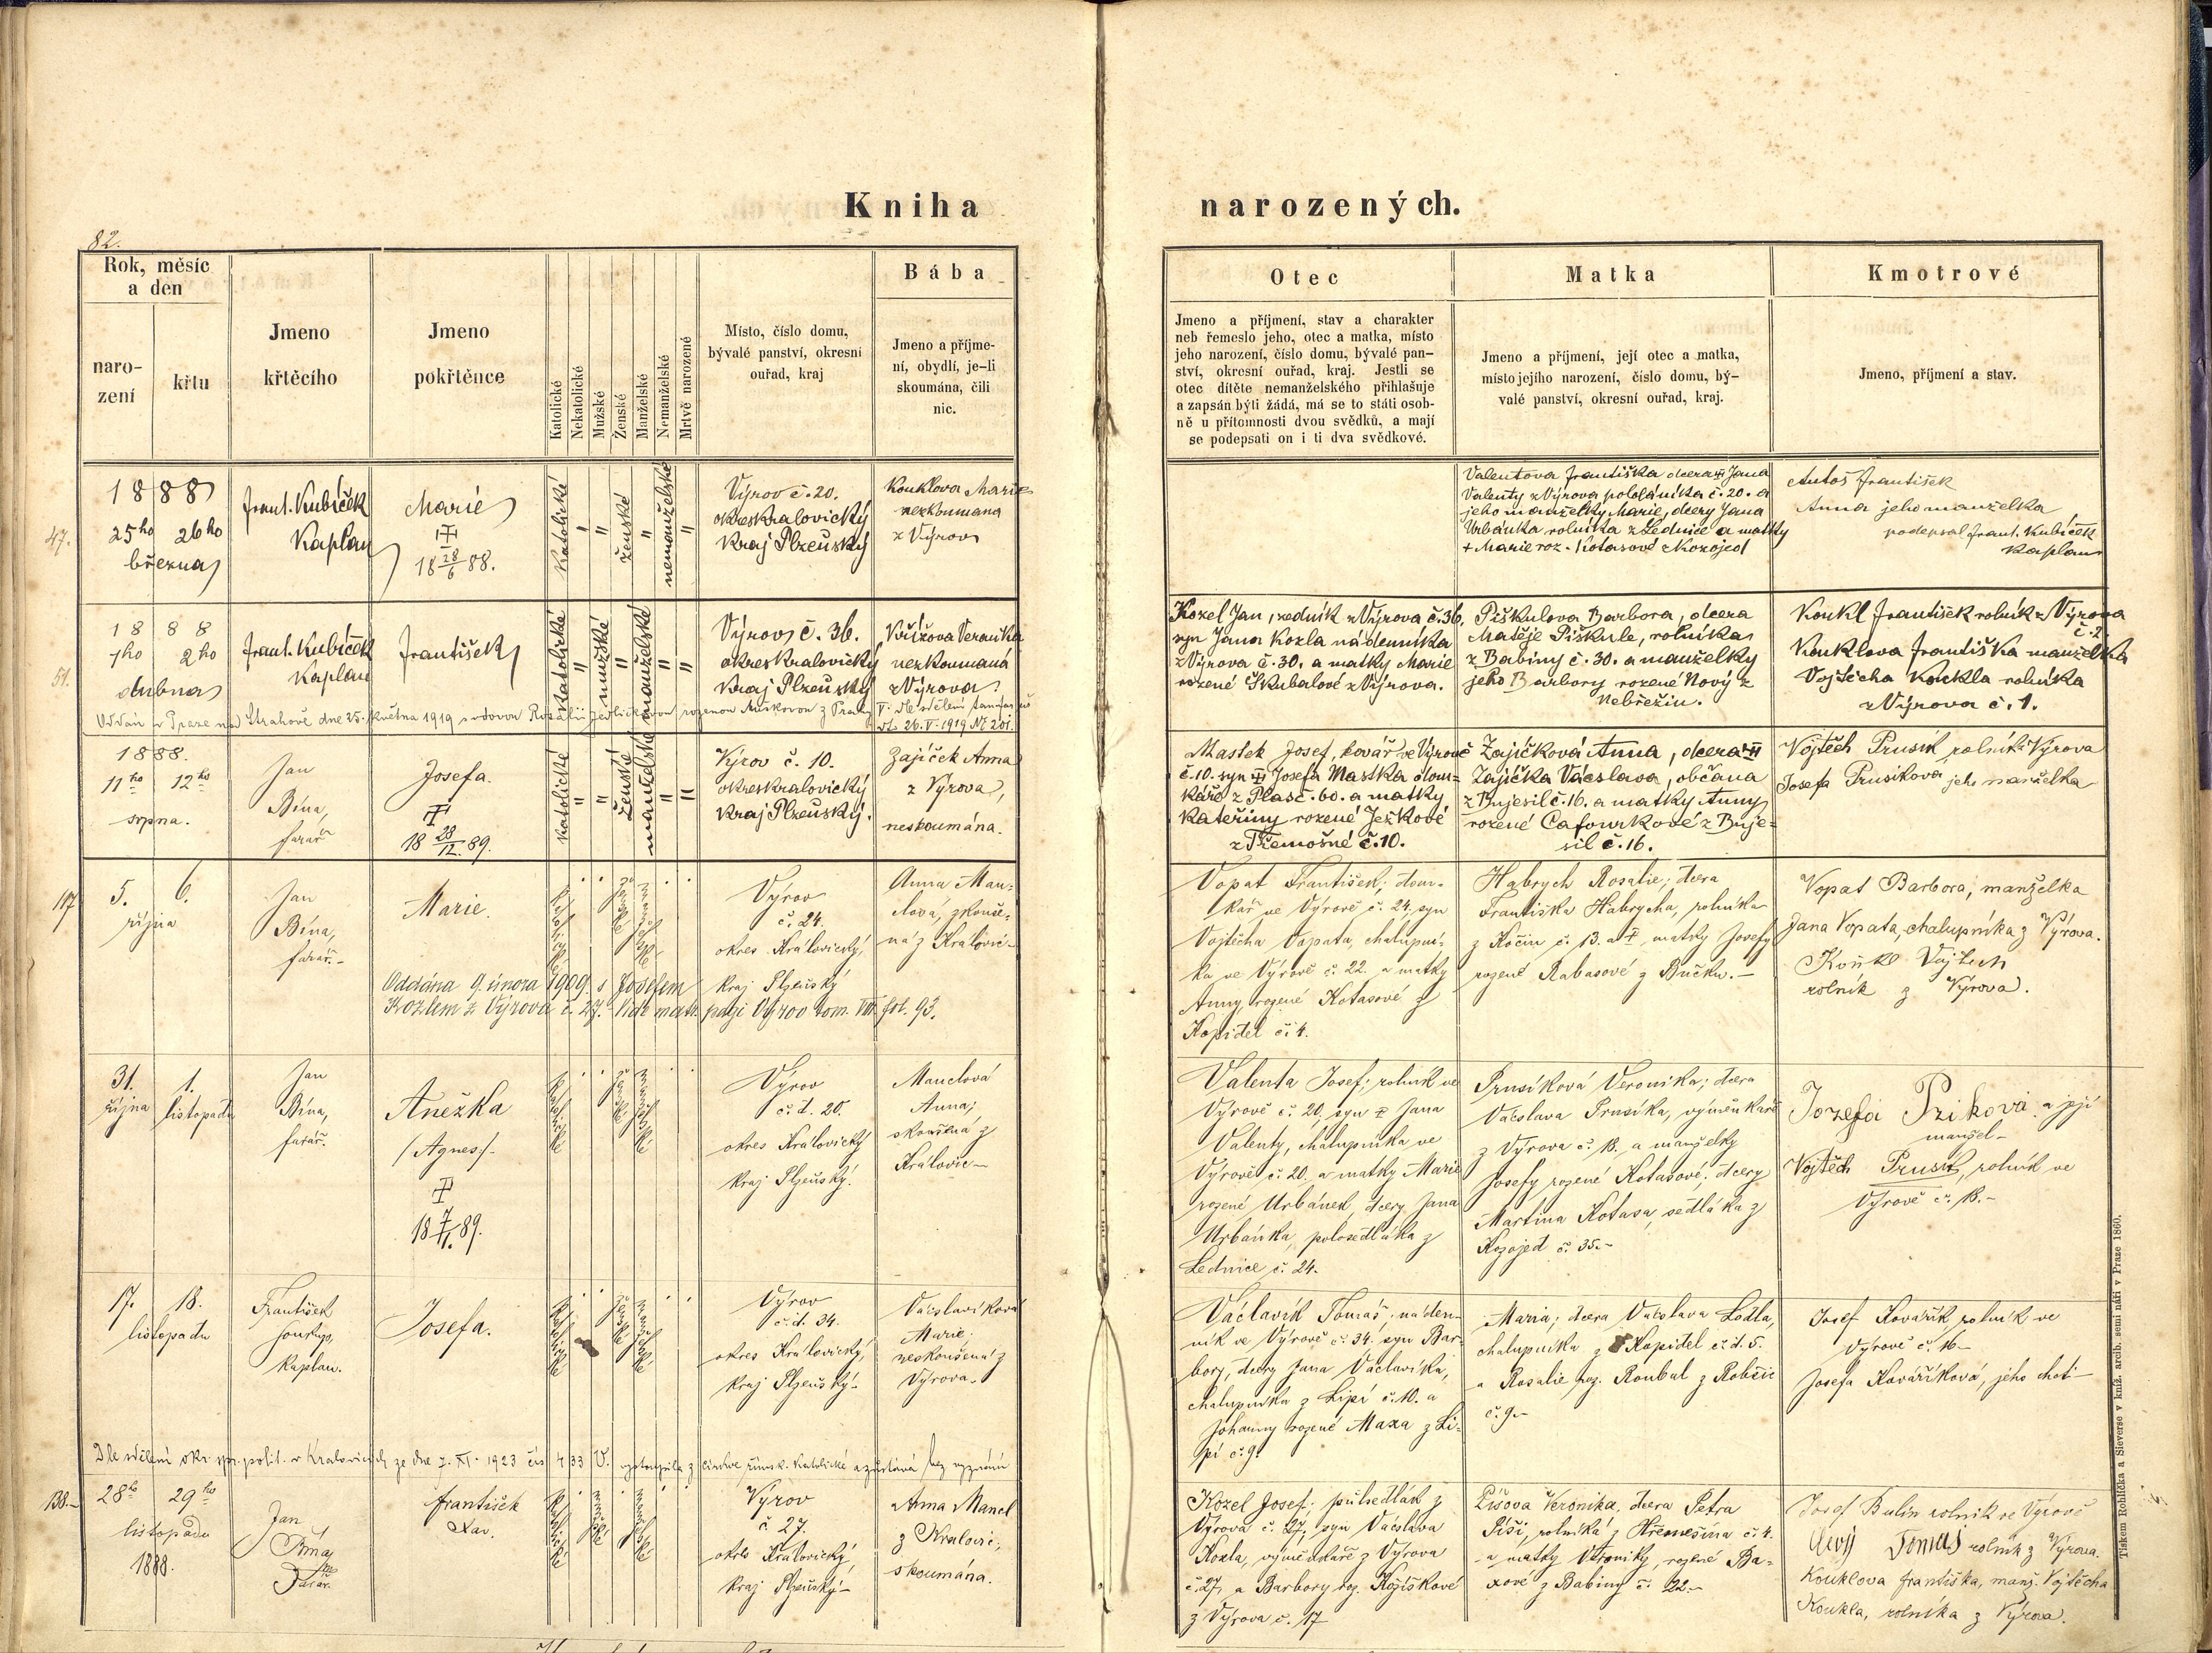 Kniha narozených.
82.
Rok, měsíc
a den
naro-
zení
křtu
Jmeno
křtěcího
Jmeno
pokřtěnce
Katolické
Nekatolické
Mužské
Ženské
Manželské
Nemanželské
Mrtvě narozené
Místo, číslo domu,
bývalé panství, okresní
ouřad, kraj
Bába
Jmeno a příjme-
ní, obydlí, je-li
skoumána, čili
nic.
Otec
Jmeno a příjmení, stav a charakter
neb řemeslo jeho, otec a matka, místo
jeho narození, číslo domu, bývalé pan-
ství, okresní ouřad, kraj. Jestli se
otec dítěte nemanželského přihlašuje
a zapsán býti žádá, má se to státi osob-
ně u přítomnosti dvou svědků, a mají
se podepsati on i ti dva svědkové.
Matka
Jmeno a příjmení, její otec a matka,
místo jejího narození, číslo domu, bý-
valé panství, okresní ouřad, kraj.
Kmotrové
Jmeno, příjmení a stav.
47.
1888
25ho 26ho
března
Frant. Kubíček
Kaplan
Marie
18 28/6 88.
Katolické
"
"
ženské
"
nemanželské
"
Výrov č. 20.
okres Kralovický
Kraj Plzeňský
Kouklova Marie
nezkoumana
z Výrova
Valentova Františka dcera Jana
Valenty z Výrova pololáníka č. 20. a
jeho manželky Marie, dcery Jana
Urbánka rolníka z Lednice a matky
+ Marie roz. Kotasové z Kozojed
Antoš František
Anna jeho manželka
podepsal Frant. Kubíček
Kaplan
51.
1888
1ho 2ho
dubna
Frant. Kubíček
Kaplan
František
katolické
"
mužské
"
manželské
"
"
Výrov č. 36.
okres Kralovický
Kraj Plzeňský
Křížova Veronika
nezkoumaná
z Výrova
Kozel Jan, zedník z Výrova č. 36,
syn Jana Kozla nádenníka
z Výrova č. 30. a matky Marie
rozené Škubalové z Výrova.
Piškulova Barbora, dcera
Matěje Piškule, rolníka
z Babiny č. 30. a manželky
jeho Barbory rozené Nový z
Nebřežin.
Koukl František rolník z Výrova
č. 2
Kouklova Františka manželka
Vojtěcha Koukla rolníka
z Výrova č. 1.
Oddán v Praze na Strahově dne 25. května 1919 s vdovou Rosalií Jedličkovou rozenou
dto 26. V. 1919 № 201.
1888.
11ho 12ho
srpna.
Jan
Bína,
farář
Josefa.
18 28/12. 89.
katolické
"
"
ženské
manželské
"
"
Výrov č. 10.
okres kralovický
Kraj Plzeňský.
Zajíček Anna
z Výrova,
neskoumána.
Mastek Josef, kovář ve Výrově
č. 10. syn Josefa Mastka dom-
káře z Plas č. 60. a matky
Kateřiny rozené Ježkové
z Třemošné č. 10.
Zajíčková Anna, dcera
Zajíčka Václava, občana
z Bujesil č. 16. a matky Anny
rozené Cafourkové z Buje-
sil č. 16.
Vojtěch Prusík rolník z Výrova
Josefa Prusíkova jeho manželka
117
5. 6.
října
Jan
Bína,
farář.-
Marie.
Katolické
Ženské
manželské
Výrov
č. 24.
okres Královický,
kraj Plzeňský
Anna Man-
clová, zkouše-
ná z Kralovic-
Vopat František; dom-
kář ve Výrově č. 24, syn
Vojtěcha Vopata, chalupní-
ka ve Výrově č. 22. a matky
Anny, rozené Kotasové z
Kopidel č. 4.
Habrych Rosalie; dcera
Františka Habrycha, rolníka
z Kočin č. 13. a matky Josefy
rozené Rabasové z Bučku.-
Vopat Barbora, manželka
Jana Vopata, chalupníka z Výrova.
Koukl Vojtěch
rolník z Výrova.
Oddána 9. února 1909 s Josefem
Kozlem z Výrova č. 27. Vide matr. pagi Výrov tom. VIII fol. 93.
31. 1.
října listopadu
Jan
Bína,
farář.
Anežka
/Agnes/-
18 7/1. 89.
Katolické
ženské
manželské
Výrov
č. d. 20.
okres Královický
kraj Plzeňský.
Manclová
Anna;
skoušená z
Královic-
Valenta Josef; rolník ve
Výrově č. 20, syn Jana
Valenty, chalupníka ve
Výrově č. 20. a matky Marie
rozené Urbánek, dcery Jana
Urbánka, polosedláka z
Lednice č. 24.
Prusíková Veronika; dcera
Václava Prusíka, výměnkáře
z Výrova č. 13. a manželky
Josefy rozené Kotasové; dcery
Martina Kotasa, sedláka z
Kozojed č. 35.-
Jozefa Pziková a její
manžel-
Vojtěch Prusík, rolník ve
Výrově č. 13.-
17. 18.
listopadu
František
Soukup,
Kaplan.
Josefa.
Katolické
ženské
manželské
Výrov
č. d. 34.
okres Královický,
kraj Plzeňský.-
Václavíková
Marie;
neskoušená z
Výrova.
Václavík Tomáš, náden-
ník ve Výrově č. 34. syn Bar-
bory, dcery Jana Václavíka,
chalupníka z Lipí č. 10. a
Johanny rozené Maxa z Li-
pí č. 9.
Maria; dcera Václava Lodla,
chalupníka z Kopidel č. d. 5.
a Rosalie roz. Roubal z Robčic
č. 9.-
Josef Kovářík rolník ve
Výrově č. 16-
Josefa Kováříková, jeho choť-
Dle sdělení okr. spr. polit. v Kralovicích ze dne 7. XI. 1923 čís 433 V. vystoupila z církve římsk. katolické a zůstává bez vyznání
138.-
28ho 29ho
listopadu
1888.
Jan
Bína
Farář
František
Xav.
Katolické
mužské
manželské
Výrov
č. 27.
okres Královický,
kraj Plzeňský-
Anna Mancl
z Kralovic,
skoumána.
Kozel Josef; půlsedlák z
Výrova č. 27, syn Václava
Kozla, výměnkáře z Výrova
č. 27, a Barbory roz. Kojíškové
z Výrova č. 17
Píšova Veronika, dcera Petra
Píši, rolníka z Hřemešína č. 4.
a matky Veroniky, rozené Ba-
xové z Babiny č. 22.-
Josef Bulín rolník ve Výrově
Tomáš rolník z Výrova.
Kouklova Františka, manž. Vojtěcha
Koukla, rolníka z Výrova.
Tiskem Rohlíčka a Sieverse v kníž. arcib. semináři v Praze 1860.